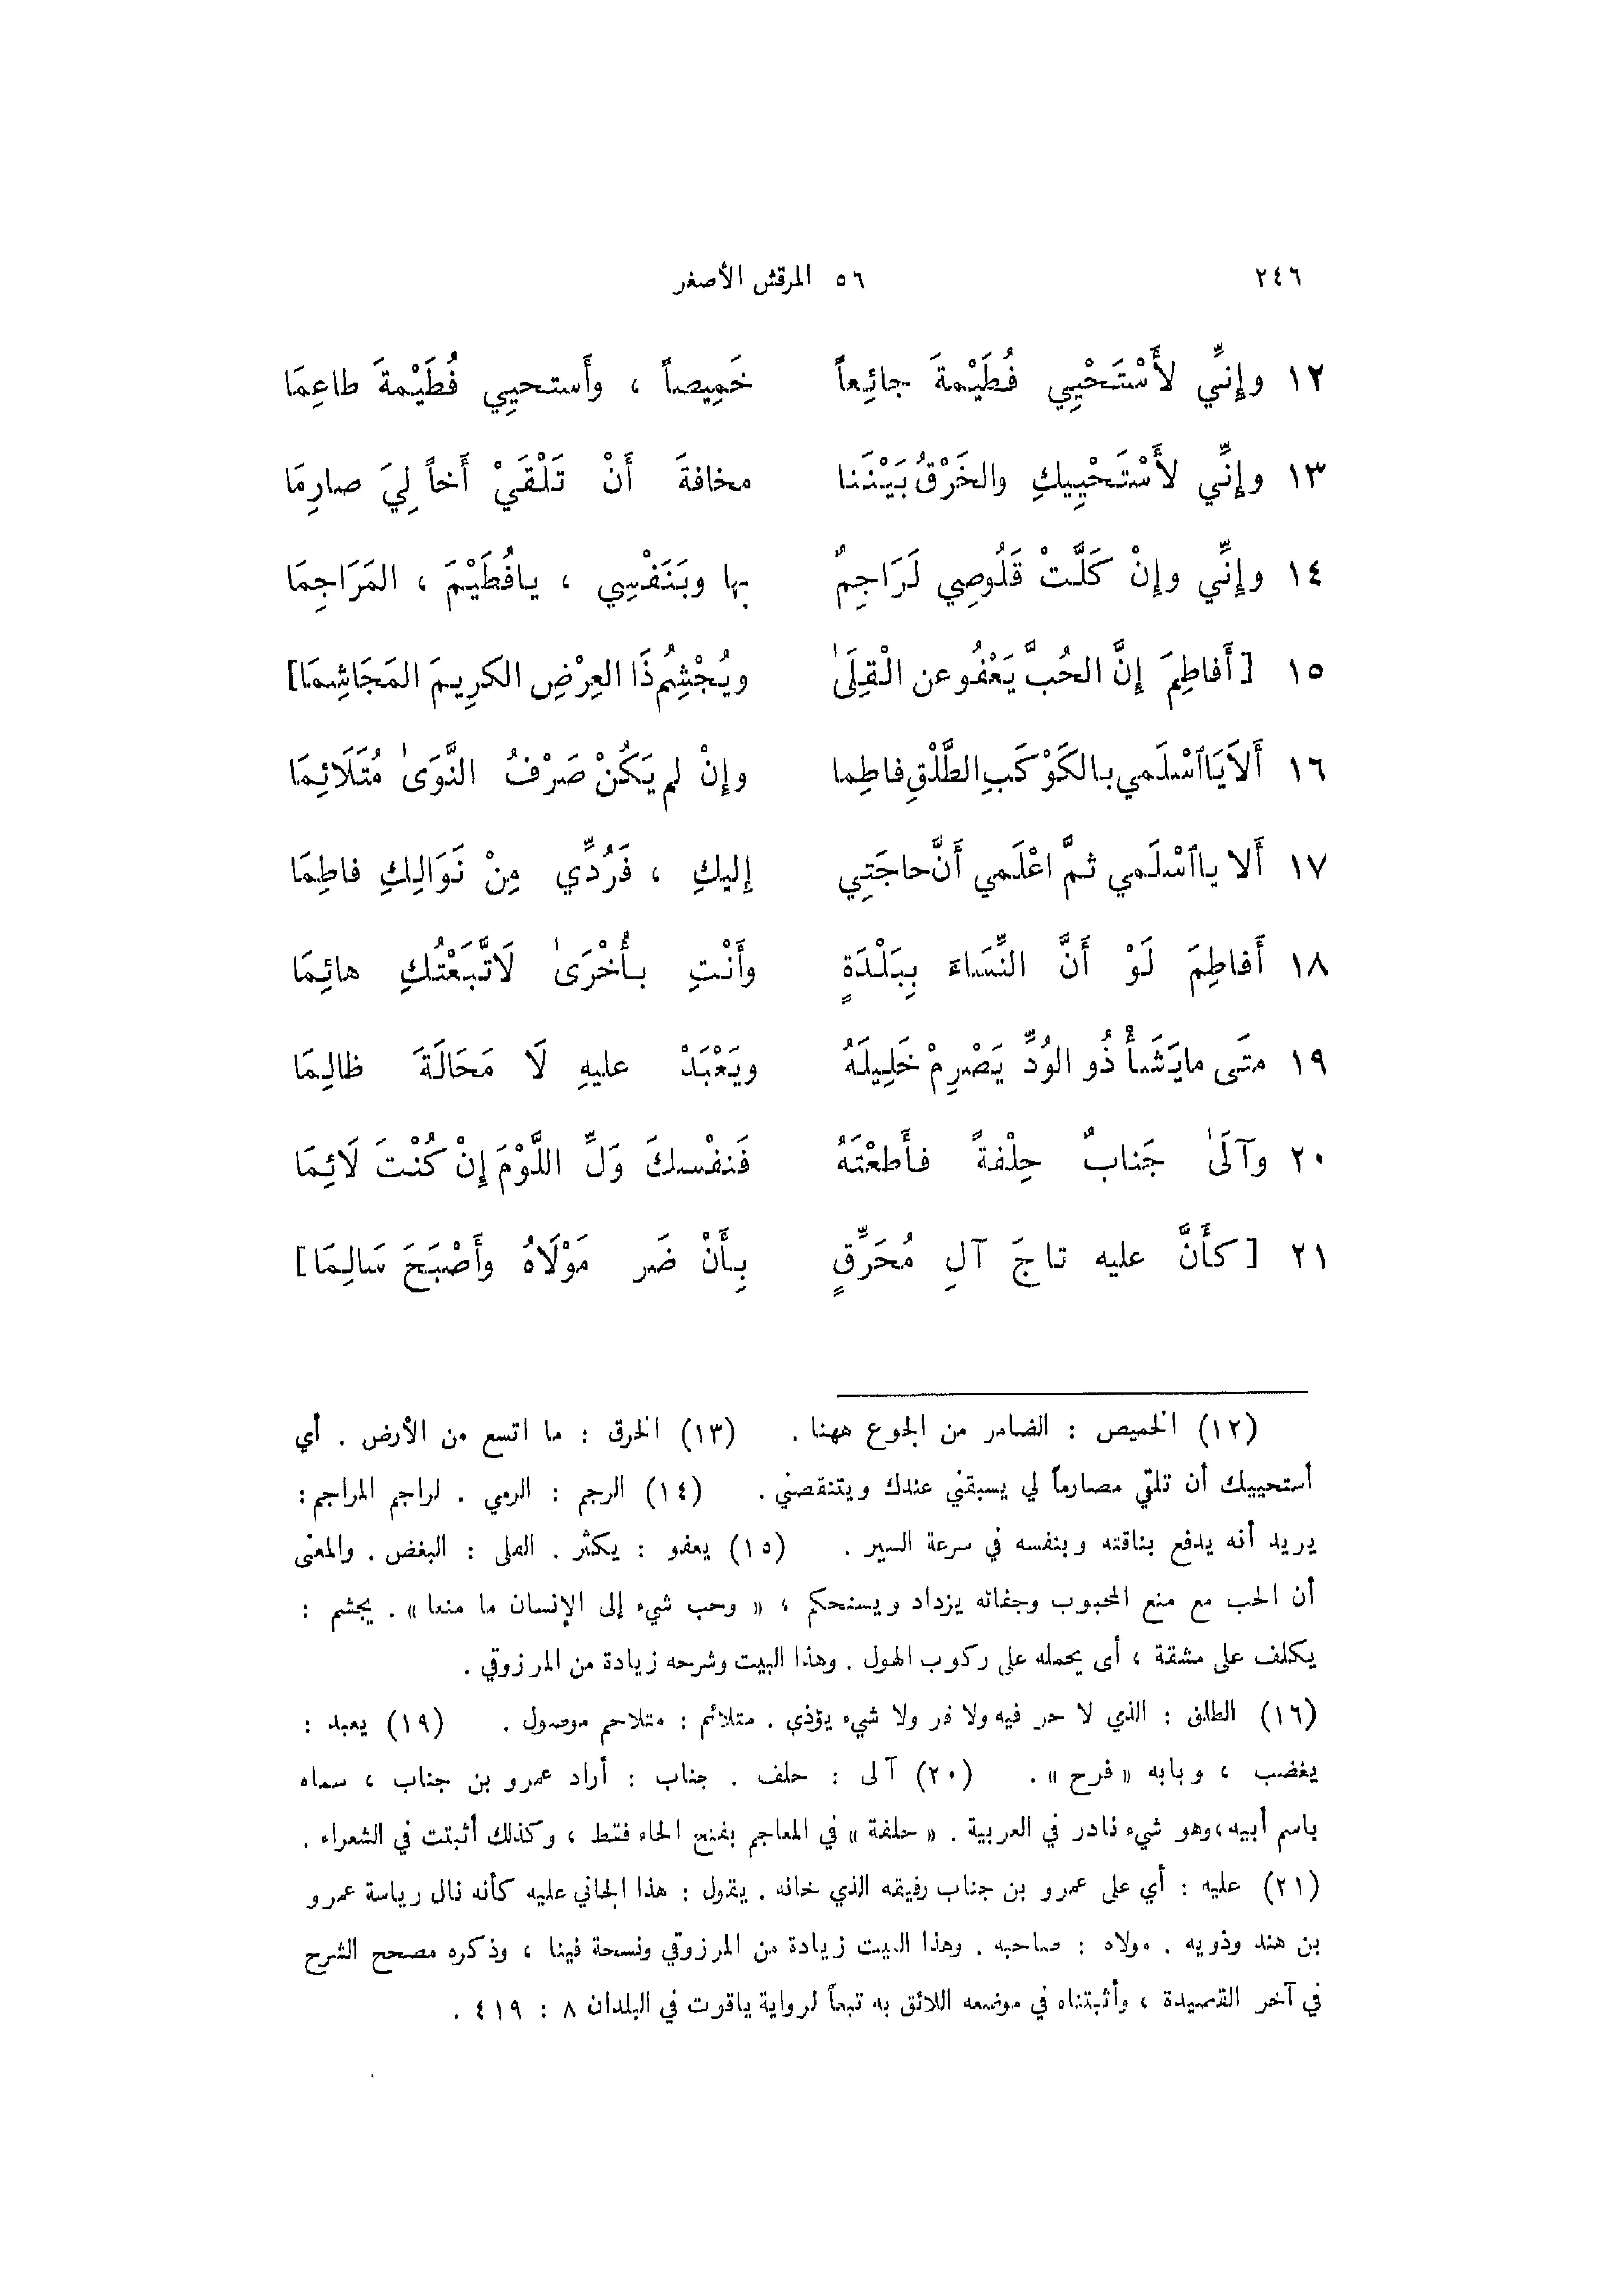 ٢٤٦
٥٦ المرقش الأصغر
١٢ وإِنِّي لأَسْتَحْيِي فُطَيْمةَ جائِعاً خَمِيصاً ، وأَستحيِي فُطَيْمةَ طاعِمَا
١٣ وإِنِّي لأَسْتَحْيِيكِ والخَرْقُ بَيْنَنا مخافةَ أَنْ تَلْقَيْ أَخاً لِيَ صارِمَا
١٤ وإِنِّي وإِنْ كَلَّتْ قَلُوصِي لَرَاجِمٌ بها وبَنَفْسِي ، يافُطَيْمَ ، المَرَاجِمَا
١٥ [ أَفاطِمَ إِنَّ الحُبَّ يَعْفُو عن الْقِلَىٰ ويُجْشِمُ ذَا العِرْضِ الكرِيمَ المَجَاشِمَا]
١٦ أَلاَ يَا ٱسْلَمي بالكَوْكَبِ الطَّلْقِ فاطِما وإِنْ لم يَكُنْ صَرْفُ النَّوَىٰ مُتَلَائِمَا
١٧ أَلا يا ٱسْلَمي ثمَّ اعْلَمي أَنَّ حاجَتِي إِليكِ ، فَرُدِّي مِنْ نَوَالِكِ فاطِمَا
١٨ أَفاطِمَ لَوْ أَنَّ النِّسَاءَ بِبَلْدَةٍ وأَنْتِ بأُخْرَىٰ لَاتَّبَعْتُكِ هائِمَا
١٩ متَى مايَشَأْ ذُو الوُدِّ يَصْرِمْ خَلِيلَهُ ويَعْبَدْ عليهِ لَا مَحَالَةَ ظالِمَا
٢٠ وآلَىٰ جَنابٌ حِلْفةً فأَطعْتَهُ فَنفْسكَ وَلِّ اللَّوْمَ إِنْ كُنْتَ لَائِمَا
٢١ [ كأَنَّ عليه تاجَ آلِ مُحَرِّقٍ بِأَنْ ضَر مَوْلَاهُ وأَصْبَحَ سَالِمَا]
(١٢) الخميص : الضامر من الجوع ههنا . (١٣) الخرق : ما اتسع من الأرض . أي
أستحييك أن تلقي مصارماً لي يسبقني عندك ويتنقصني . (١٤) الرجم : الرمي . لراجم المراجم :
يريد أنه يدفع بناقته وبنفسه في سرعة السير . (١٥) يعفو : يكثر . القلى : البغض . والمعنى
أن الحب مع منع المحبوب وجفائه يزداد ويستحكم ، « وحب شيء إلى الإنسان ما منعا » . يجشم :
يكلف على مشقة ، أى يحمله على ركوب الهول . وهذا البيت وشرحه زيادة من المرزوقي .
(١٦) الطلق : الذي لا حر فيه ولا قر ولا شيء يؤذي . متلائم : متلاحم موصول . (١٩) يعبد :
يغضب ، وبابه « فرح » . (٢٠) آلى : حلف . جناب : أراد عمرو بن جناب ، سماه
باسم أبيه ، وهو شيء نادر في العربية . « حلفة » في المعاجم بفتح الحاء فقط ، وكذلك أثبتت في الشعراء .
(٢١) عليه : أي على عمرو بن جناب رفيقه الذي خانه . يقول : هذا الجاني عليه كأنه نال رياسة عمرو
بن هند وذويه . مولاه : صاحبه . وهذا البيت زيادة من المرزوقي ونسخة فينا ، وذكره مصحح الشرح
في آخر القصيدة ، وأثبتناه في موضعه اللائق به تبعاً لرواية ياقوت في البلدان ٨ : ٤١٩ .